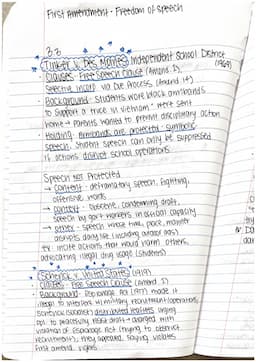 First Amendment - Freedom of Speech
3.3
Tinker v. Des Moines Independent School District
(1969)
Clauses - Free Speech Clause (Amend I),
Selective Incorp via Due Process (Amend 14)
Background - Students wore black armbands
to support a truce in Vietnam. Were sent
home → Parents wanted to prevent disciplinary action
Holding - Armbands are protected symbolic
speech, student speech can only be suppressed
if actions distract school operations.
Speech Not Protected
→ Content - defamatory speech, fighting,
offensive words
→ Context - obscene, condemning draft,
speech by gov't workers in official capacity
→ Other - speech whose time, place, manner
disrupts daily life (including outdoor)
ex: incite actions that would harm others,
advocating illegal drug usage (students)
Schenck v. United States (1919)
Clauses - Free Speech Clause (Amend I)
Background - Espionage Act (1917) made it
illegal to interfere w/ military recruitment/operations
Schenck (socialist) distributed leaflets urging
ppl to resist draft → charged with
violation of Espionage Act (trying to obstruct
recruitment), they appealed, saying violates
First Amend. rights